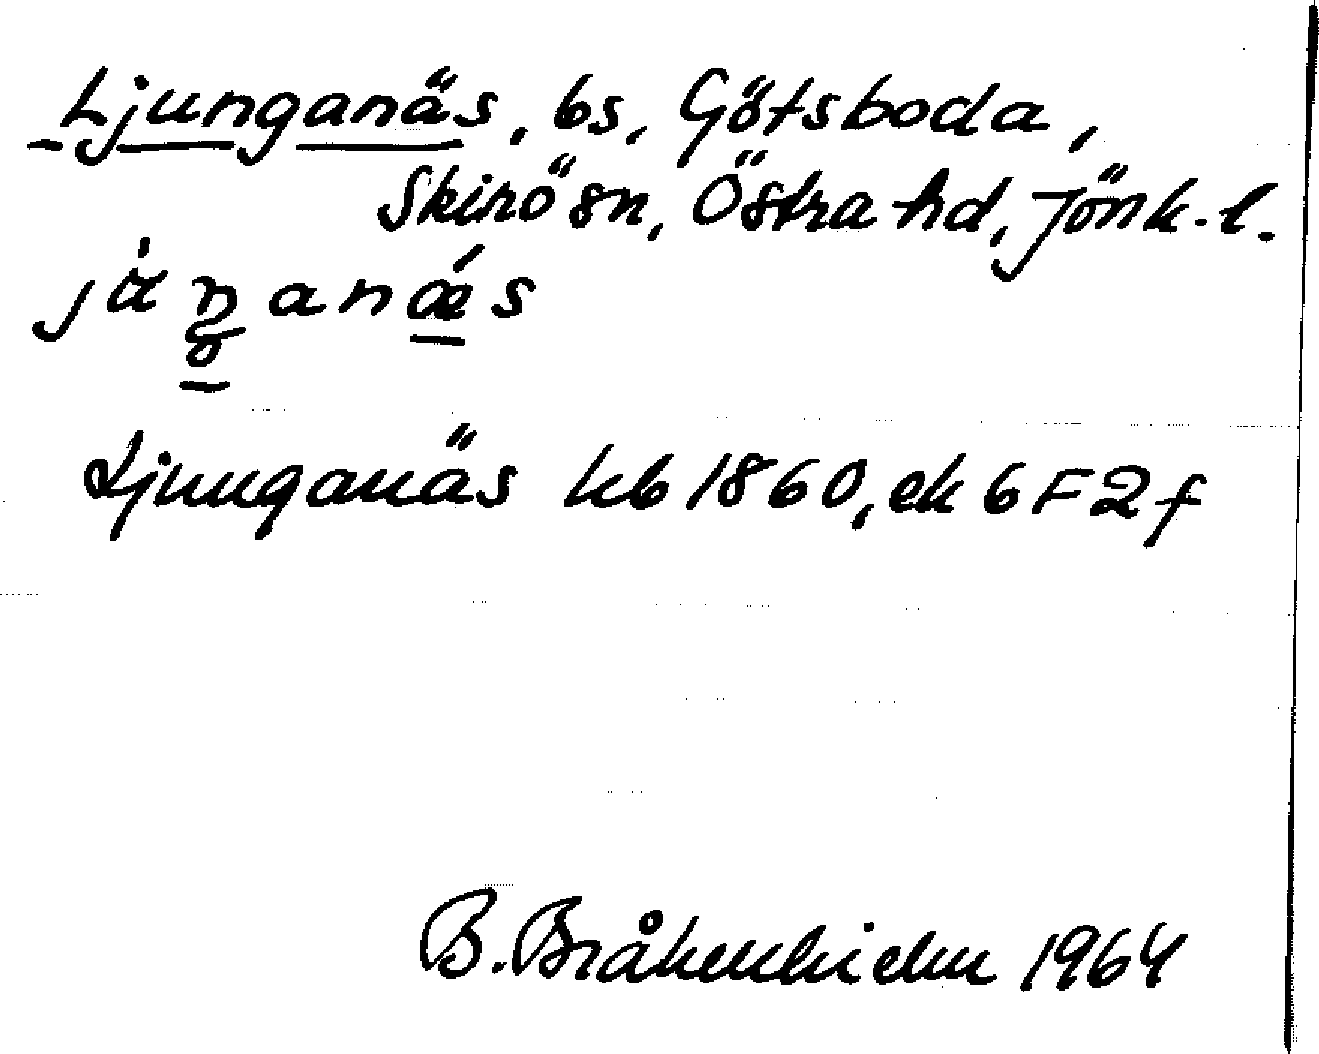 Ljunganäs, bs, Götsboda,
Skirö sn, Östra hd, Jönk. l.
Ljunganäs hb 1860, ek 6F2f
B. 1964